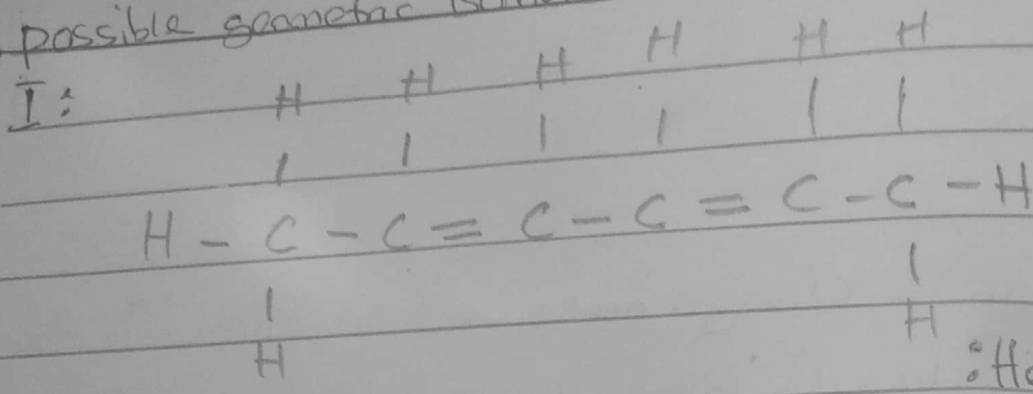 possible geometric
I:
H H H H H H
| | | | | |
H - C - C = C - C = C - C - H
| |
H H